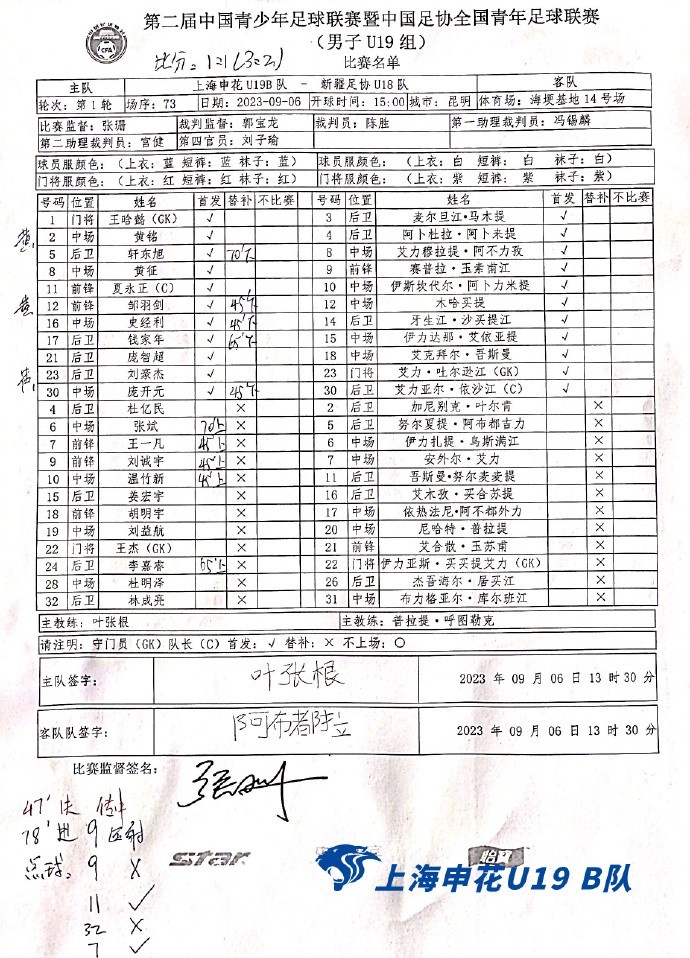 第二届中国青少年足球联赛暨中国足协全国青年足球联赛
（男子U19组）
比分：1:1(3:2)
比赛名单
主队 上海申花U19B队 - 新疆足协U18队 客队
轮次：第1轮 场序：73 日期：2023-09-06 开球时间：15:00 城市：昆明 体育场：海埂基地14号场
比赛监督：张珊 裁判监督：郭宝龙 裁判员：陈胜 第一助理裁判员：冯锡麟
第二助理裁判员：宫健 第四官员：刘子瑜
球员服颜色：（上衣：蓝 短裤：蓝 袜子：蓝） 球员服颜色：（上衣：白 短裤：白 袜子：白）
门将服颜色：（上衣：红 短裤：红 袜子：红） 门将服颜色：（上衣：紫 短裤：紫 袜子：紫）
号码 位置 姓名 首发 替补 不比赛 号码 位置 姓名 首发 替补 不比赛
1 门将 王哈鹤（GK） √ 3 后卫 麦尔旦江·马木提 √
2 中场 黄铭 √ 4 后卫 阿卜杜拉·阿卜未提 √
黄 5 后卫 轩东旭 √ 70'下 8 中场 艾力穆拉提·阿不力孜 √
8 中场 黄征 √ 9 前锋 赛普拉·玉素甫江 √
11 前锋 夏永正（C） √ 10 中场 伊斯坎代尔·阿卜力米提 √
黄 12 前锋 邹羽剑 √ 45'下 12 中场 木哈买提 √
16 中场 史经利 √ 45'下 14 后卫 牙生江·沙买提江 √
17 后卫 钱家年 √ 65'下 15 中场 伊力达那·艾依亚提 √
21 后卫 庞智超 √ 18 中场 艾克拜尔·吾斯曼 √
23 后卫 刘豪杰 √ 23 门将 艾力·吐尔逊江（GK） √
30 中场 庞开元 √ 45'下 30 后卫 艾力亚尔·依沙江（C） √
4 后卫 杜亿民 × 2 后卫 加尼别克·叶尔肯 ×
6 中场 张斌 70'上 × 5 后卫 努尔夏提·阿布都吉力 ×
7 前锋 王一凡 45'上 × 6 中场 伊力扎提·乌斯满江 ×
9 前锋 刘诚宇 45'上 × 7 中场 安外尔·艾力 ×
10 中场 温竹新 45'上 × 11 后卫 吾斯曼·努尔麦麦提 ×
15 后卫 姜宏宇 × 16 后卫 艾木孜·买合苏提 ×
18 前锋 胡明宇 × 17 中场 依热法尼·阿不都外力 ×
19 中场 刘益航 × 20 中场 尼哈特·普拉提 ×
22 门将 王杰（GK） × 21 前锋 艾合散·玉苏甫 ×
24 后卫 李嘉睿 65'上 × 22 门将 伊力亚斯·买买提艾力（GK） ×
28 中场 杜明泽 × 26 后卫 杰吾海尔·居买江 ×
32 后卫 林成亮 × 31 中场 布力格亚尔·库尔班江 ×
主教练：叶张根 主教练：普拉提·呼图勒克
请注明：守门员（GK）队长（C）首发：√ 替补：× 不上场：〇
主队签字： 叶张根 2023 年 09 月 06 日 13 时 30 分
客队队签字： 2023 年 09 月 06 日 13 时 30 分
比赛监督签名： 张珊
47'
78'进 9
点球： 9 ×
11 √
32 ×
7 √
star
上海申花U19 B队